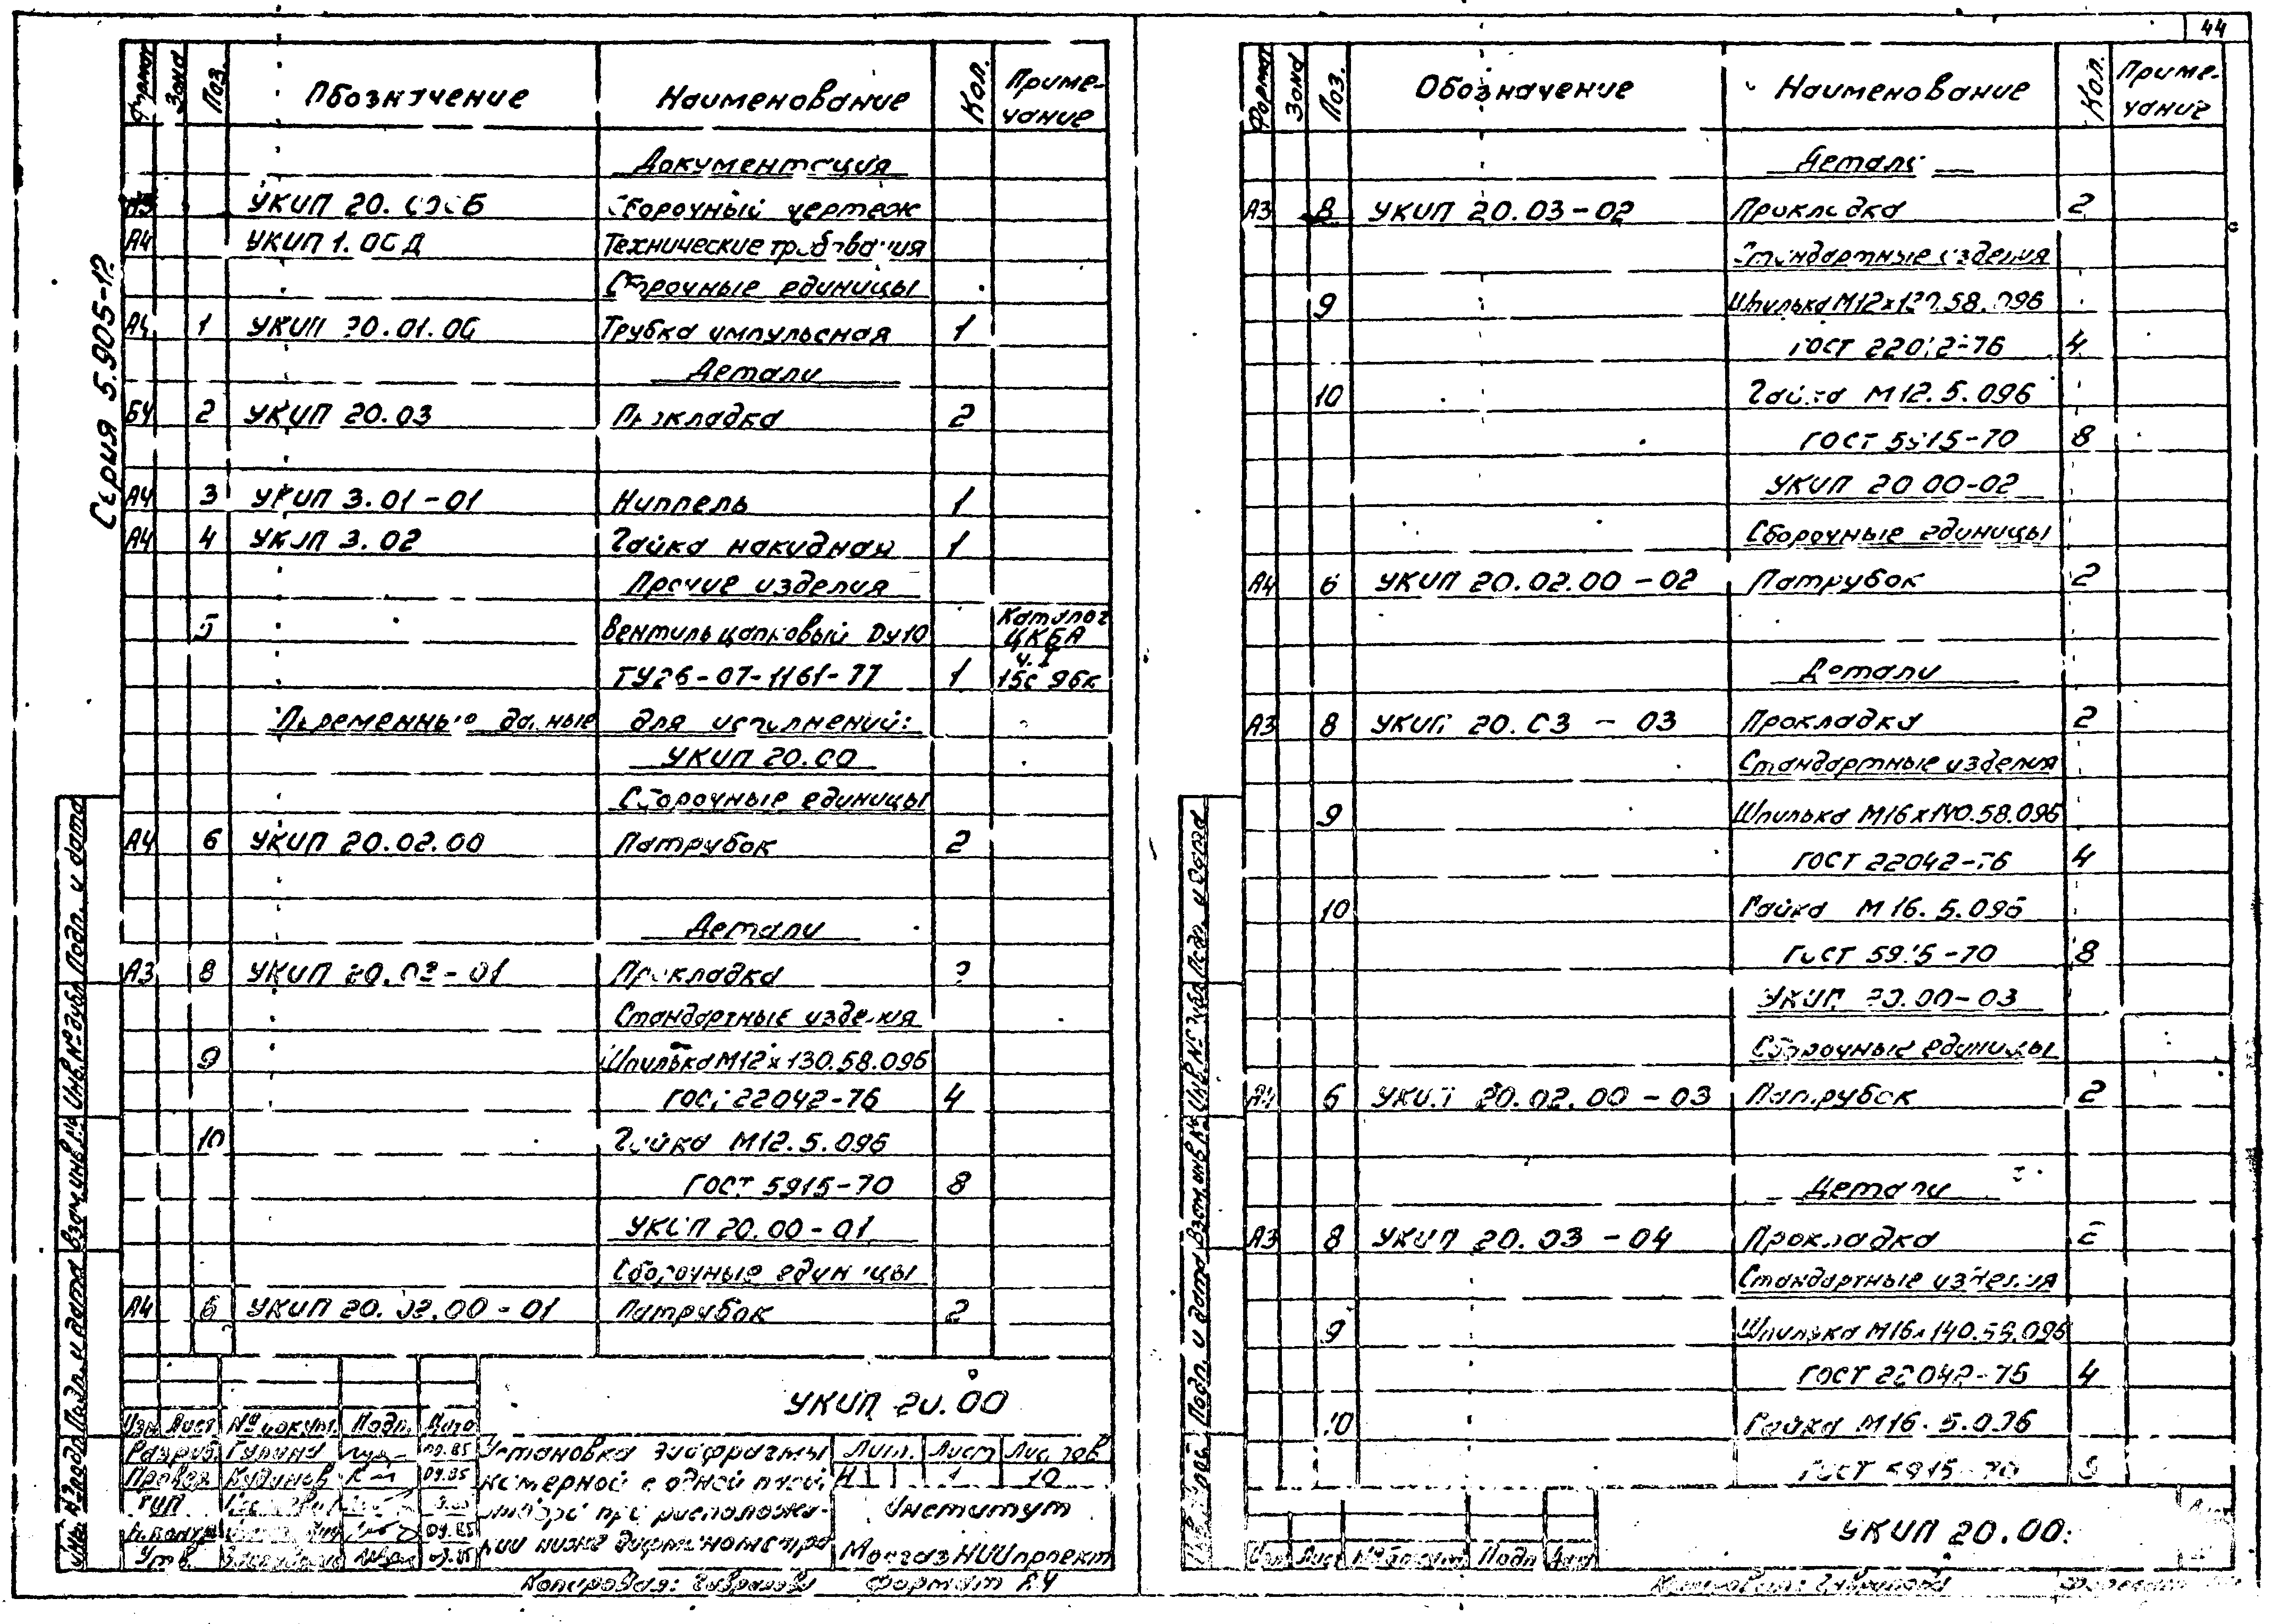 44
Серия 5.905-12
Формат Зона Поз. Обозначение Наименование Кол. Примечание
Документация
А3 УКИП 20.00СБ Сборочный чертеж
А4 УКИП 1.00Д Технические требования
Сборочные единицы
А4 1 УКИП 20.01.00 Трубка импульсная 1
Детали
БЧ 2 УКИП 20.03 Прокладка 2
А4 3 УКИП 3.01-01 Ниппель 1
А4 4 УКИП 3.02 Гайка накидная 1
Прочие изделия
5 Вентиль цапковый Dу10 Каталог ЦКБА
ТУ26-07-1161-77 1 ч.I 15с 96к
Переменные данные для исполнений:
УКИП 20.00
Сборочные единицы
А4 6 УКИП 20.02.00 Патрубок 2
Детали
А3 8 УКИП 20.03-01 Прокладка 2
Стандартные изделия
9 Шпилька М12х130.58.096
ГОСТ 22042-76 4
10 Гайка М12.5.096
ГОСТ 5915-70 8
УКИП 20.00-01
Сборочные единицы
А4 6 УКИП 20.02.00-01 Патрубок 2
УКИП 20.00
Изм Лист № докум. Подп. Дата
Разраб. Гулина 09.85
Провер. Кудинов 09.85
ГИП
Н.контр. 09.85
Утв. 09.85
Установка диафрагмы
камерной с одной парой
отбора при расположе-
нии ниже дифманометра
Лит. Лист Листов
И 1 10
Институт
МосгазНИИпроект
Копировал: Гаврилова Формат А4
Инв. № подл. Подп. и дата Взам.инв.№ Инв.№ дубл. Подп. и дата
Формат Зона Поз. Обозначение Наименование Кол. Примечание
Детали
А3 8 УКИП 20.03-02 Прокладка 2
Стандартные изделия
9 Шпилька М12х130.58.096
ГОСТ 22042-76 4
10 Гайка М12.5.096
ГОСТ 5915-70 8
УКИП 20.00-02
Сборочные единицы
А4 6 УКИП 20.02.00-02 Патрубок 2
Детали
А3 8 УКИП 20.03-03 Прокладка 2
Стандартные изделия
9 Шпилька М16х140.58.096
ГОСТ 22042-76 4
10 Гайка М16.5.096
ГОСТ 5915-70 8
УКИП 20.00-03
Сборочные единицы
А4 6 УКИП 20.02.00-03 Патрубок 2
Детали
А3 8 УКИП 20.03-04 Прокладка 2
Стандартные изделия
9 Шпилька М16х140.58.096
ГОСТ 22042-76 4
10 Гайка М16.5.096
ГОСТ 5915-70 8
УКИП 20.00
Лист
Изм Лист № докум. Подп. Дата
Копировал: Гаврилова Формат
Инв. № подл. Подп. и дата Взам.инв.№ Инв.№ дубл. Подп. и дата